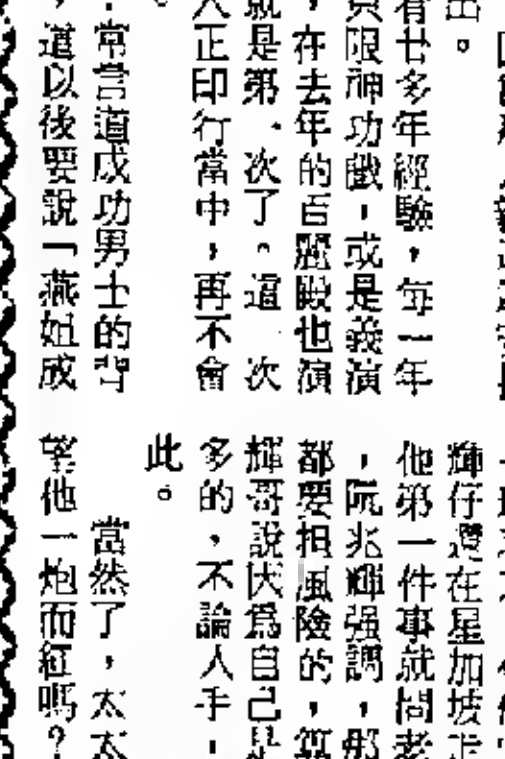 出。
有廿多年經驗，每一年
只限神功戲，或是義演
，在去年的百麗殿也演
就是第一次了。這一次
人正印行當中，再不會
。
常言道成功男士的背
，道以後要說「燕姐成
輝仔還在星加坡
他第一件事就問老
，阮兆輝强調，那
都要担風險的，算
輝哥說因爲自己是
多的，不論人手，
此。
當然了，太太
望他一炮而紅嗎？